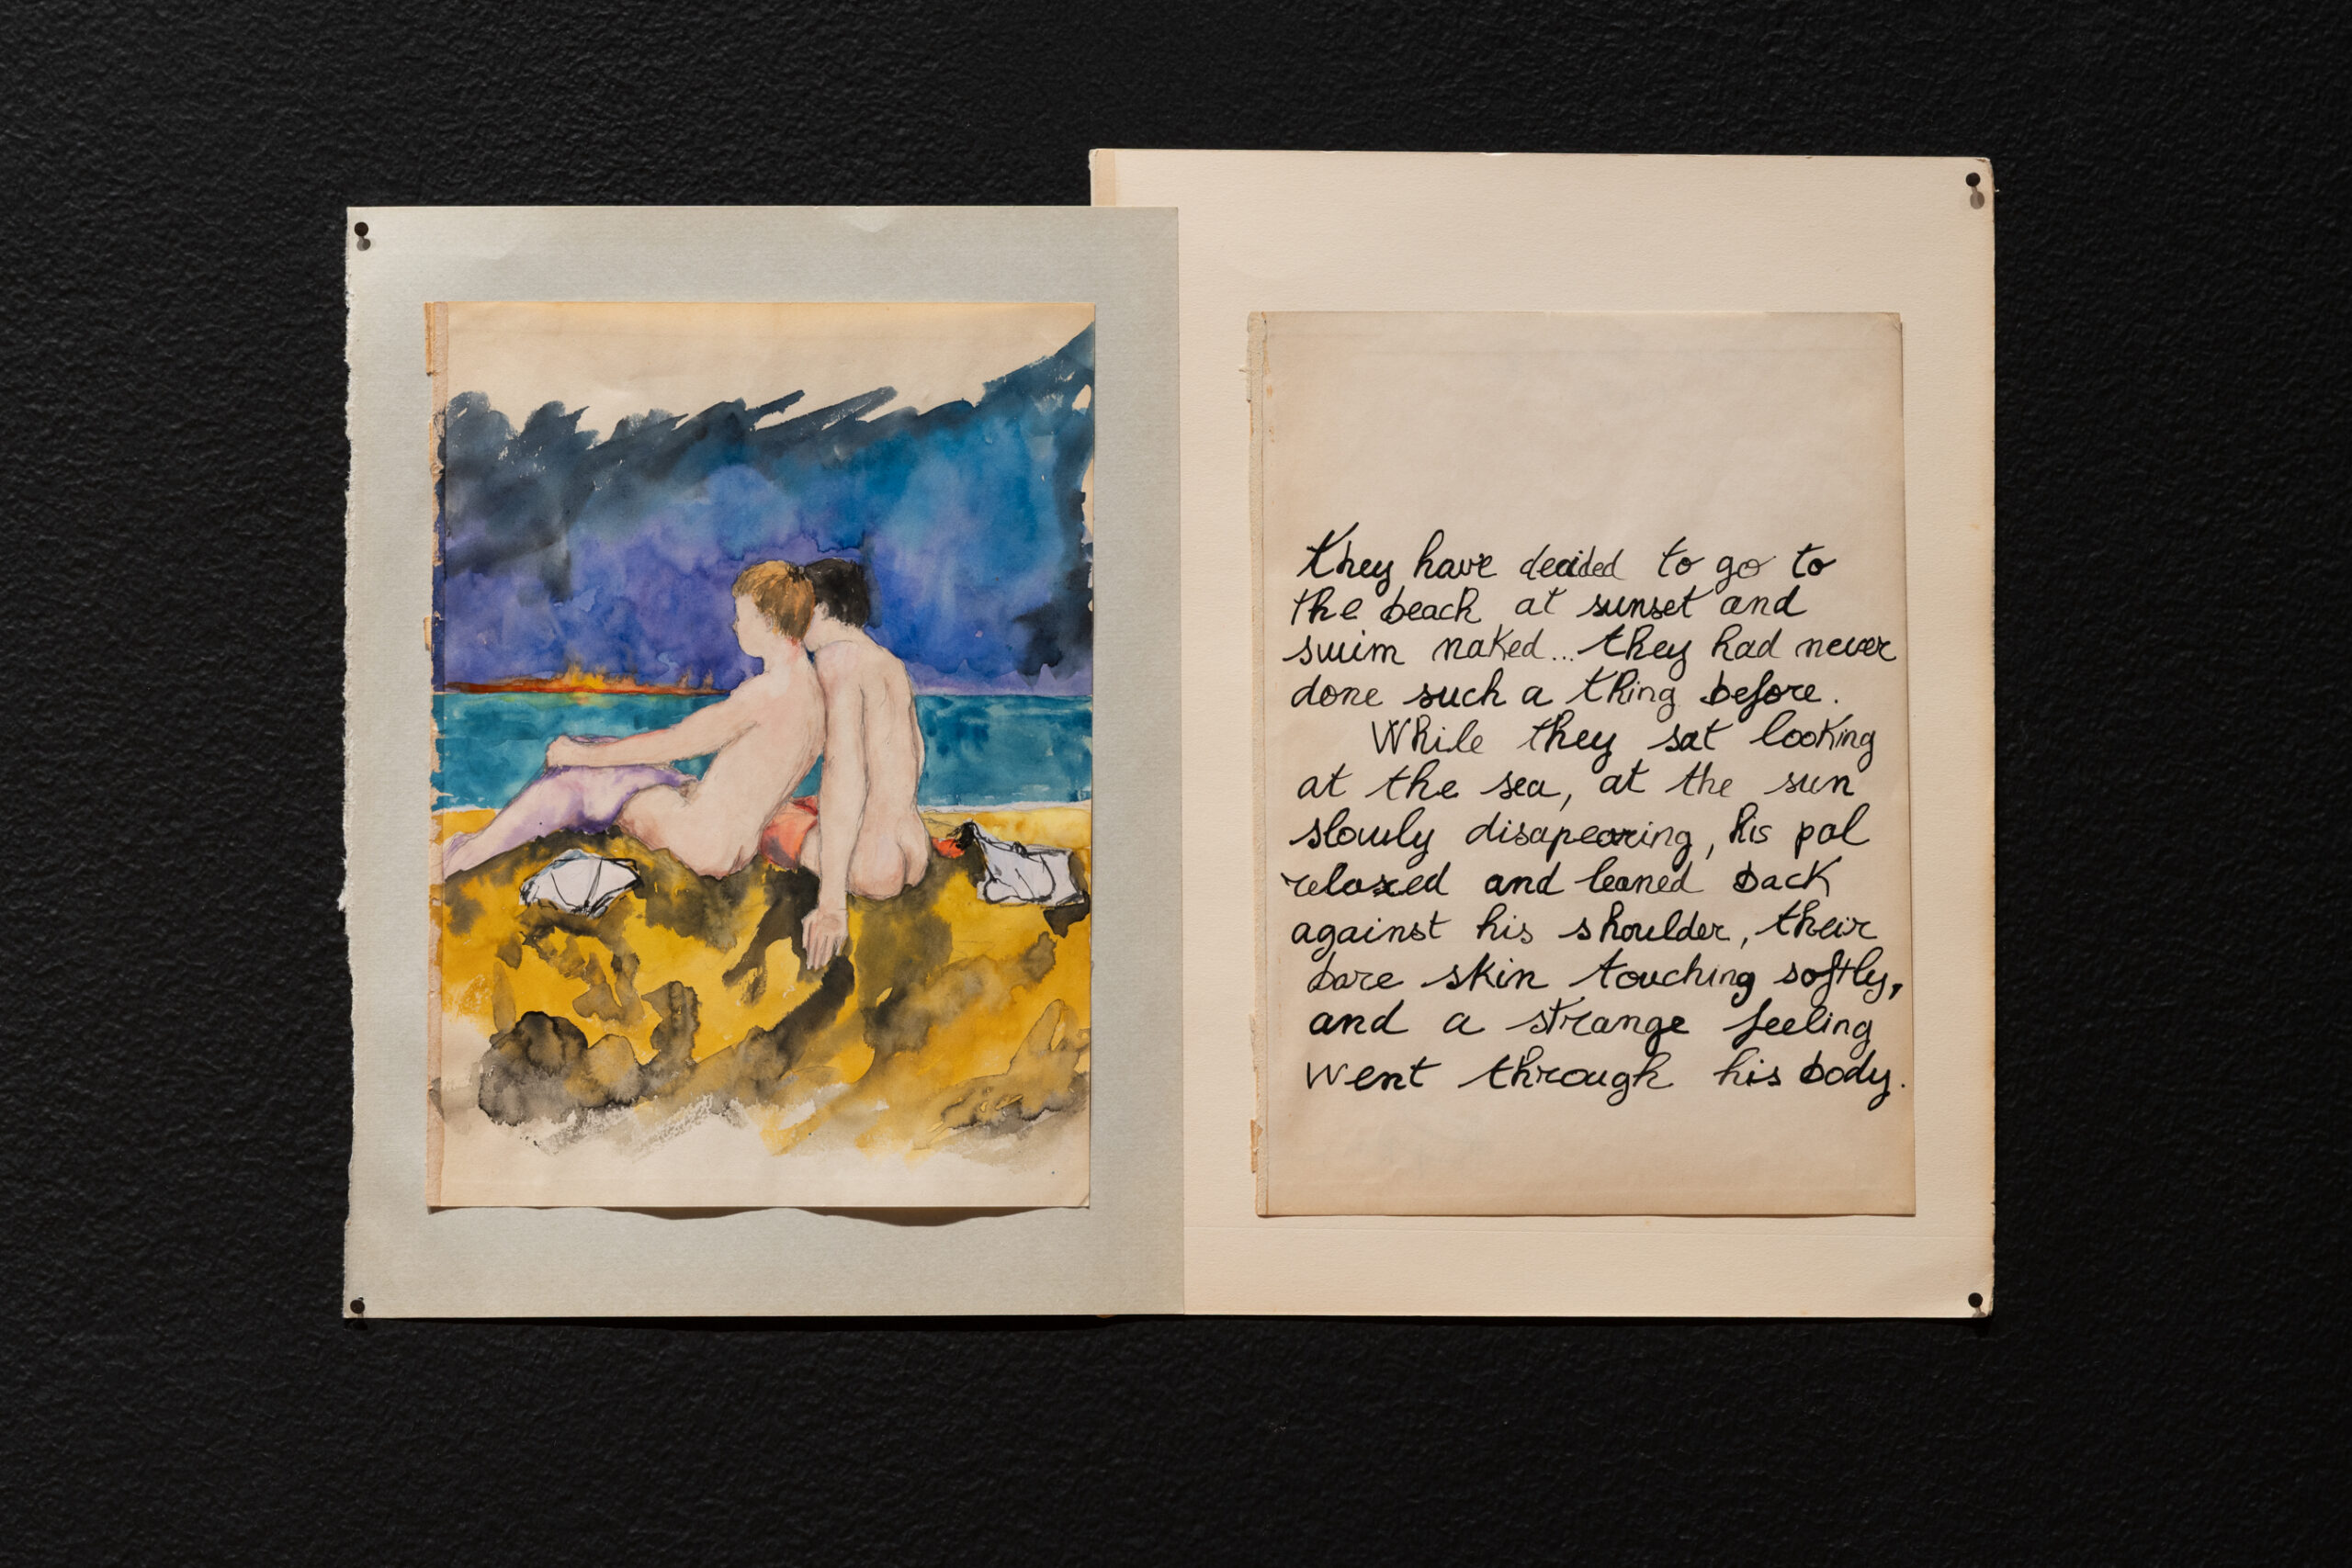 they have decided to go to
the beach at sunset and
swim naked... they had never
done such a thing before.
While they sat looking
at the sea, at the sun
slowly disapearing, his pal
relaxed and leaned back
against his shoulder, their
bare skin touching softly,
and a strange feeling
went through his body.